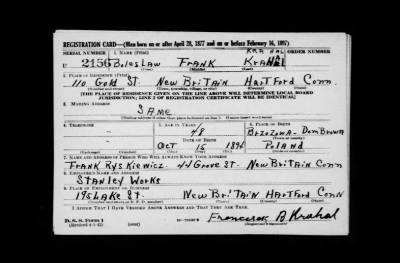 REGISTRATION CARD—(Men born on or after April 28, 1877 and on or before February 16, 1897)
SERIAL NUMBER 1. NAME (Print) KRAHAL ORDER NUMBER
U 2156 Boleslaw FRANK KRAHEL
(First) (Middle) (Last)
2. PLACE OF RESIDENCE (Print)
110 Gold St. New Britain Hartford Conn.
(Number and street) (Town, township, village, or city) (County) (State)
[THE PLACE OF RESIDENCE GIVEN ON THE LINE ABOVE WILL DETERMINE LOCAL BOARD
JURISDICTION; LINE 2 OF REGISTRATION CERTIFICATE WILL BE IDENTICAL]
3. MAILING ADDRESS
SAME
[Mailing address if other than place indicated on line 2. If same insert word same]
4. TELEPHONE 5. AGE IN YEARS 6. PLACE OF BIRTH
48 Brzozowa-Dombrowa
DATE OF BIRTH (Town or county)
Oct 15 1894 Poland
(Exchange) (Number) (Mo.) (Day) (Yr.) (State or country)
7. NAME AND ADDRESS OF PERSON WHO WILL ALWAYS KNOW YOUR ADDRESS
FRANK RYSKIEWICZ. 44 Grove St. New Britain Conn
8. EMPLOYER'S NAME AND ADDRESS
Stanley Works
9. PLACE OF EMPLOYMENT OR BUSINESS
195 Lake St. New Britain Hartford Conn
(Number and street or R. F. D. number) (Town) (County) (State)
I AFFIRM THAT I HAVE VERIFIED ABOVE ANSWERS AND THAT THEY ARE TRUE.
D. S. S. Form 1
(Revised 4-1-42) (Registrant's signature)
Franciszek B. Krahal